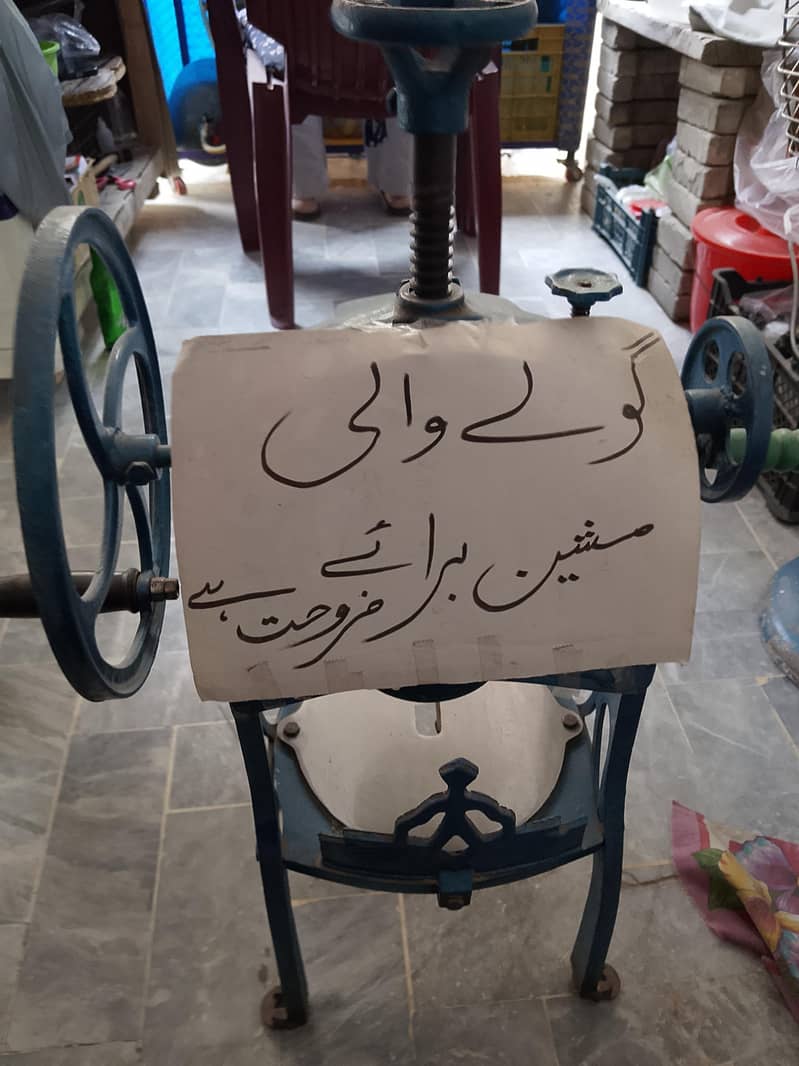 گولے والی
مشین برائے
فروخت ہے